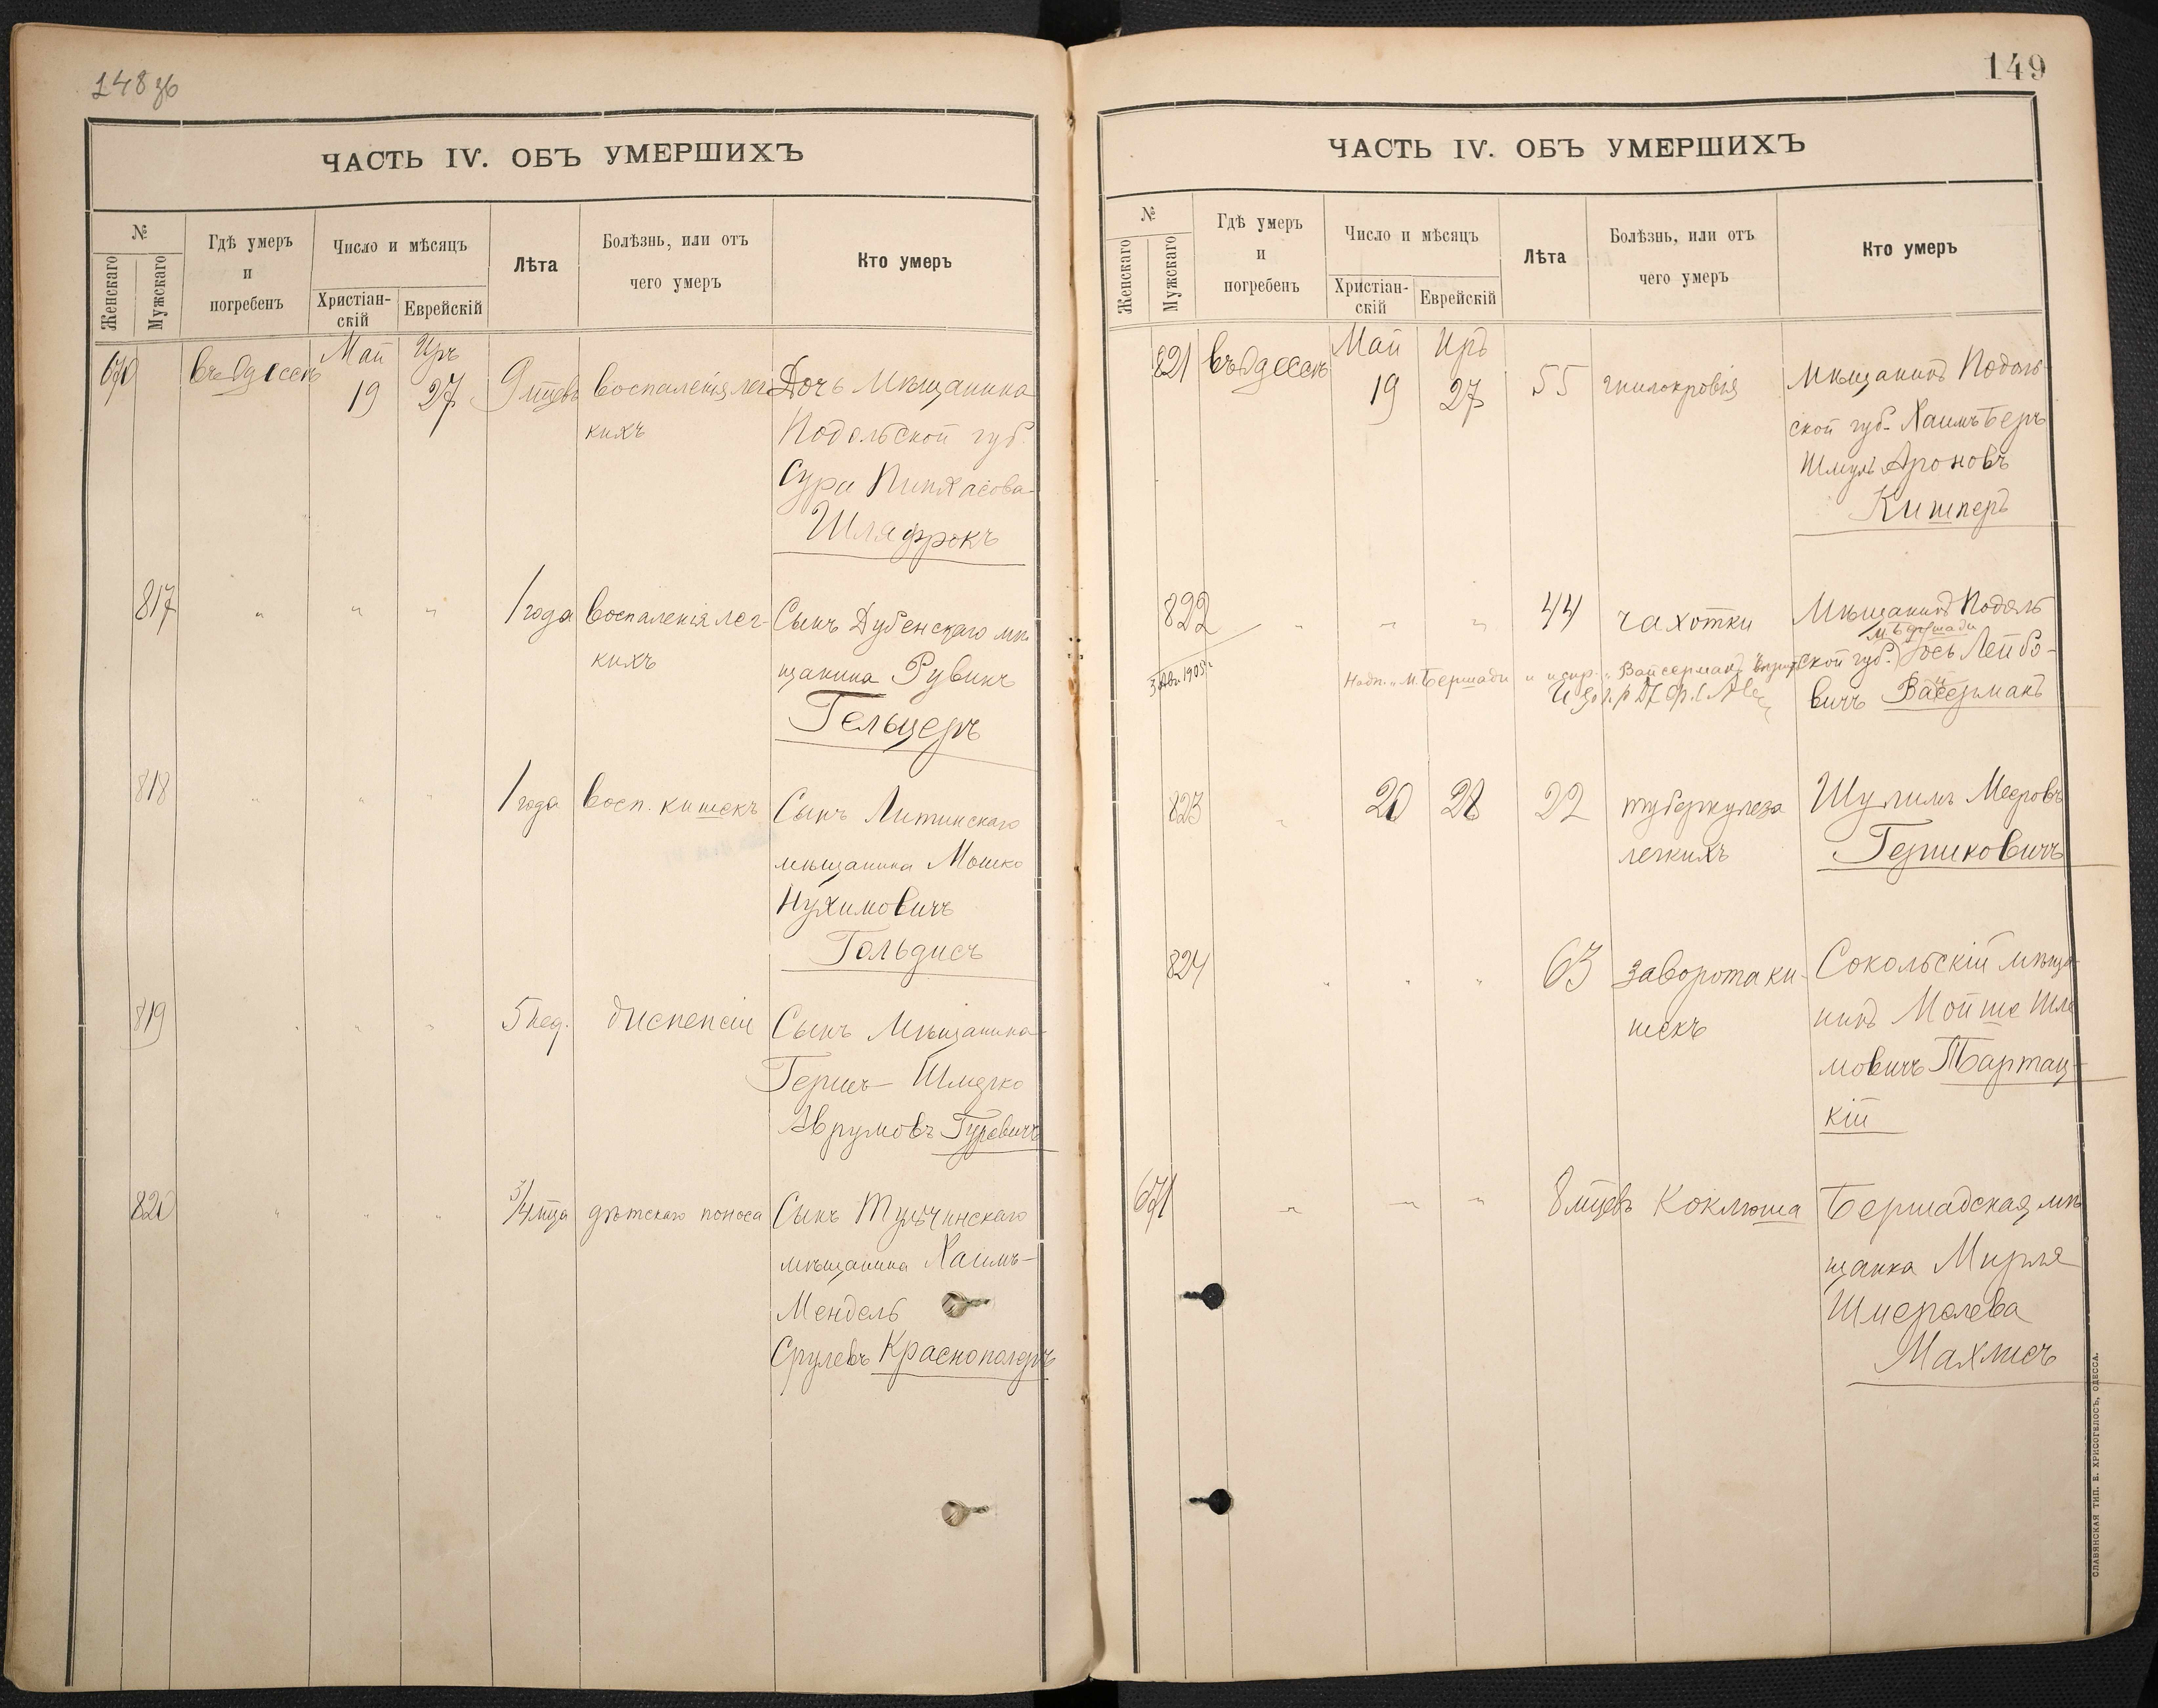 148 об
ЧАСТЬ IV. ОБЪ УМЕРШИХЪ
№
Женскаго
Мужскаго
Гдѣ умеръ
и
погребенъ
Число и мѣсяцъ
Христіан-
скій
Еврейскій
Лѣта
Болѣзнь, или отъ
чего умеръ
Кто умеръ
670 въ Одессѣ Май 19 Иръ 27 9 мцевъ воспаленія лег-
кихъ
Дочь мѣщанина
Подольской губ.
Сура Пинхасова
Шляфрокъ
817 " " " 1 года воспаленія лег-
кихъ
Сынъ Дубенскаго мѣ
щанина Рувинъ
Гельцеръ
818 " " " 1 года восп. кишекъ
Сынъ Литинскаго
мѣщанина Мошко
Нухимовичъ
Гольдисъ
819 " " " 5 нед. диспепсіи
Сынъ мѣщанина
Гершъ-Шмерко
Аврумовъ Гуревичъ
820 " " " 3/4 мца дѣтскаго поноса
Сынъ Тульчинскаго
мѣщанина Хаимъ-
Мендель
Срулевъ Краснополеръ
149
ЧАСТЬ IV. ОБЪ УМЕРШИХЪ
№
Женскаго
Мужскаго
Гдѣ умеръ
и
погребенъ
Число и мѣсяцъ
Христіан-
скій
Еврейскій
Лѣта
Болѣзнь, или отъ
чего умеръ
Кто умеръ
821 въ Одессѣ Май 19 Иръ 27 55 гнилокровія
Мѣщанинъ Подоль-
ской губ. Хаимъ Беръ
Шмуль Ароновъ
Кишперъ
822 " " " 44 чахотки
Мѣщанинъ Подоль
м. Бершади
ской губ. Іось Лейбо-
вичъ Вайсерманъ
3 Авг. 1905 г.
Надп. "м. Бершади" и испр. "Вайсерманъ"
823 " 20 28 22 туберкулеза
легкихъ
Шулимъ Мееровъ
Гершковичъ
824 " " " 63 заворота ки-
шекъ
Сокольскій мѣща-
нинъ Мойше Шле
мовичъ Тартац-
кій
671 " " " 8 мцевъ коклюша
Бершадская мѣ
щанка Мирля
Шмерелева
Махлисъ
СЛАВЯНСКАЯ ТИП. Е. ХРИСОГЕЛОСЪ, ОДЕССА.